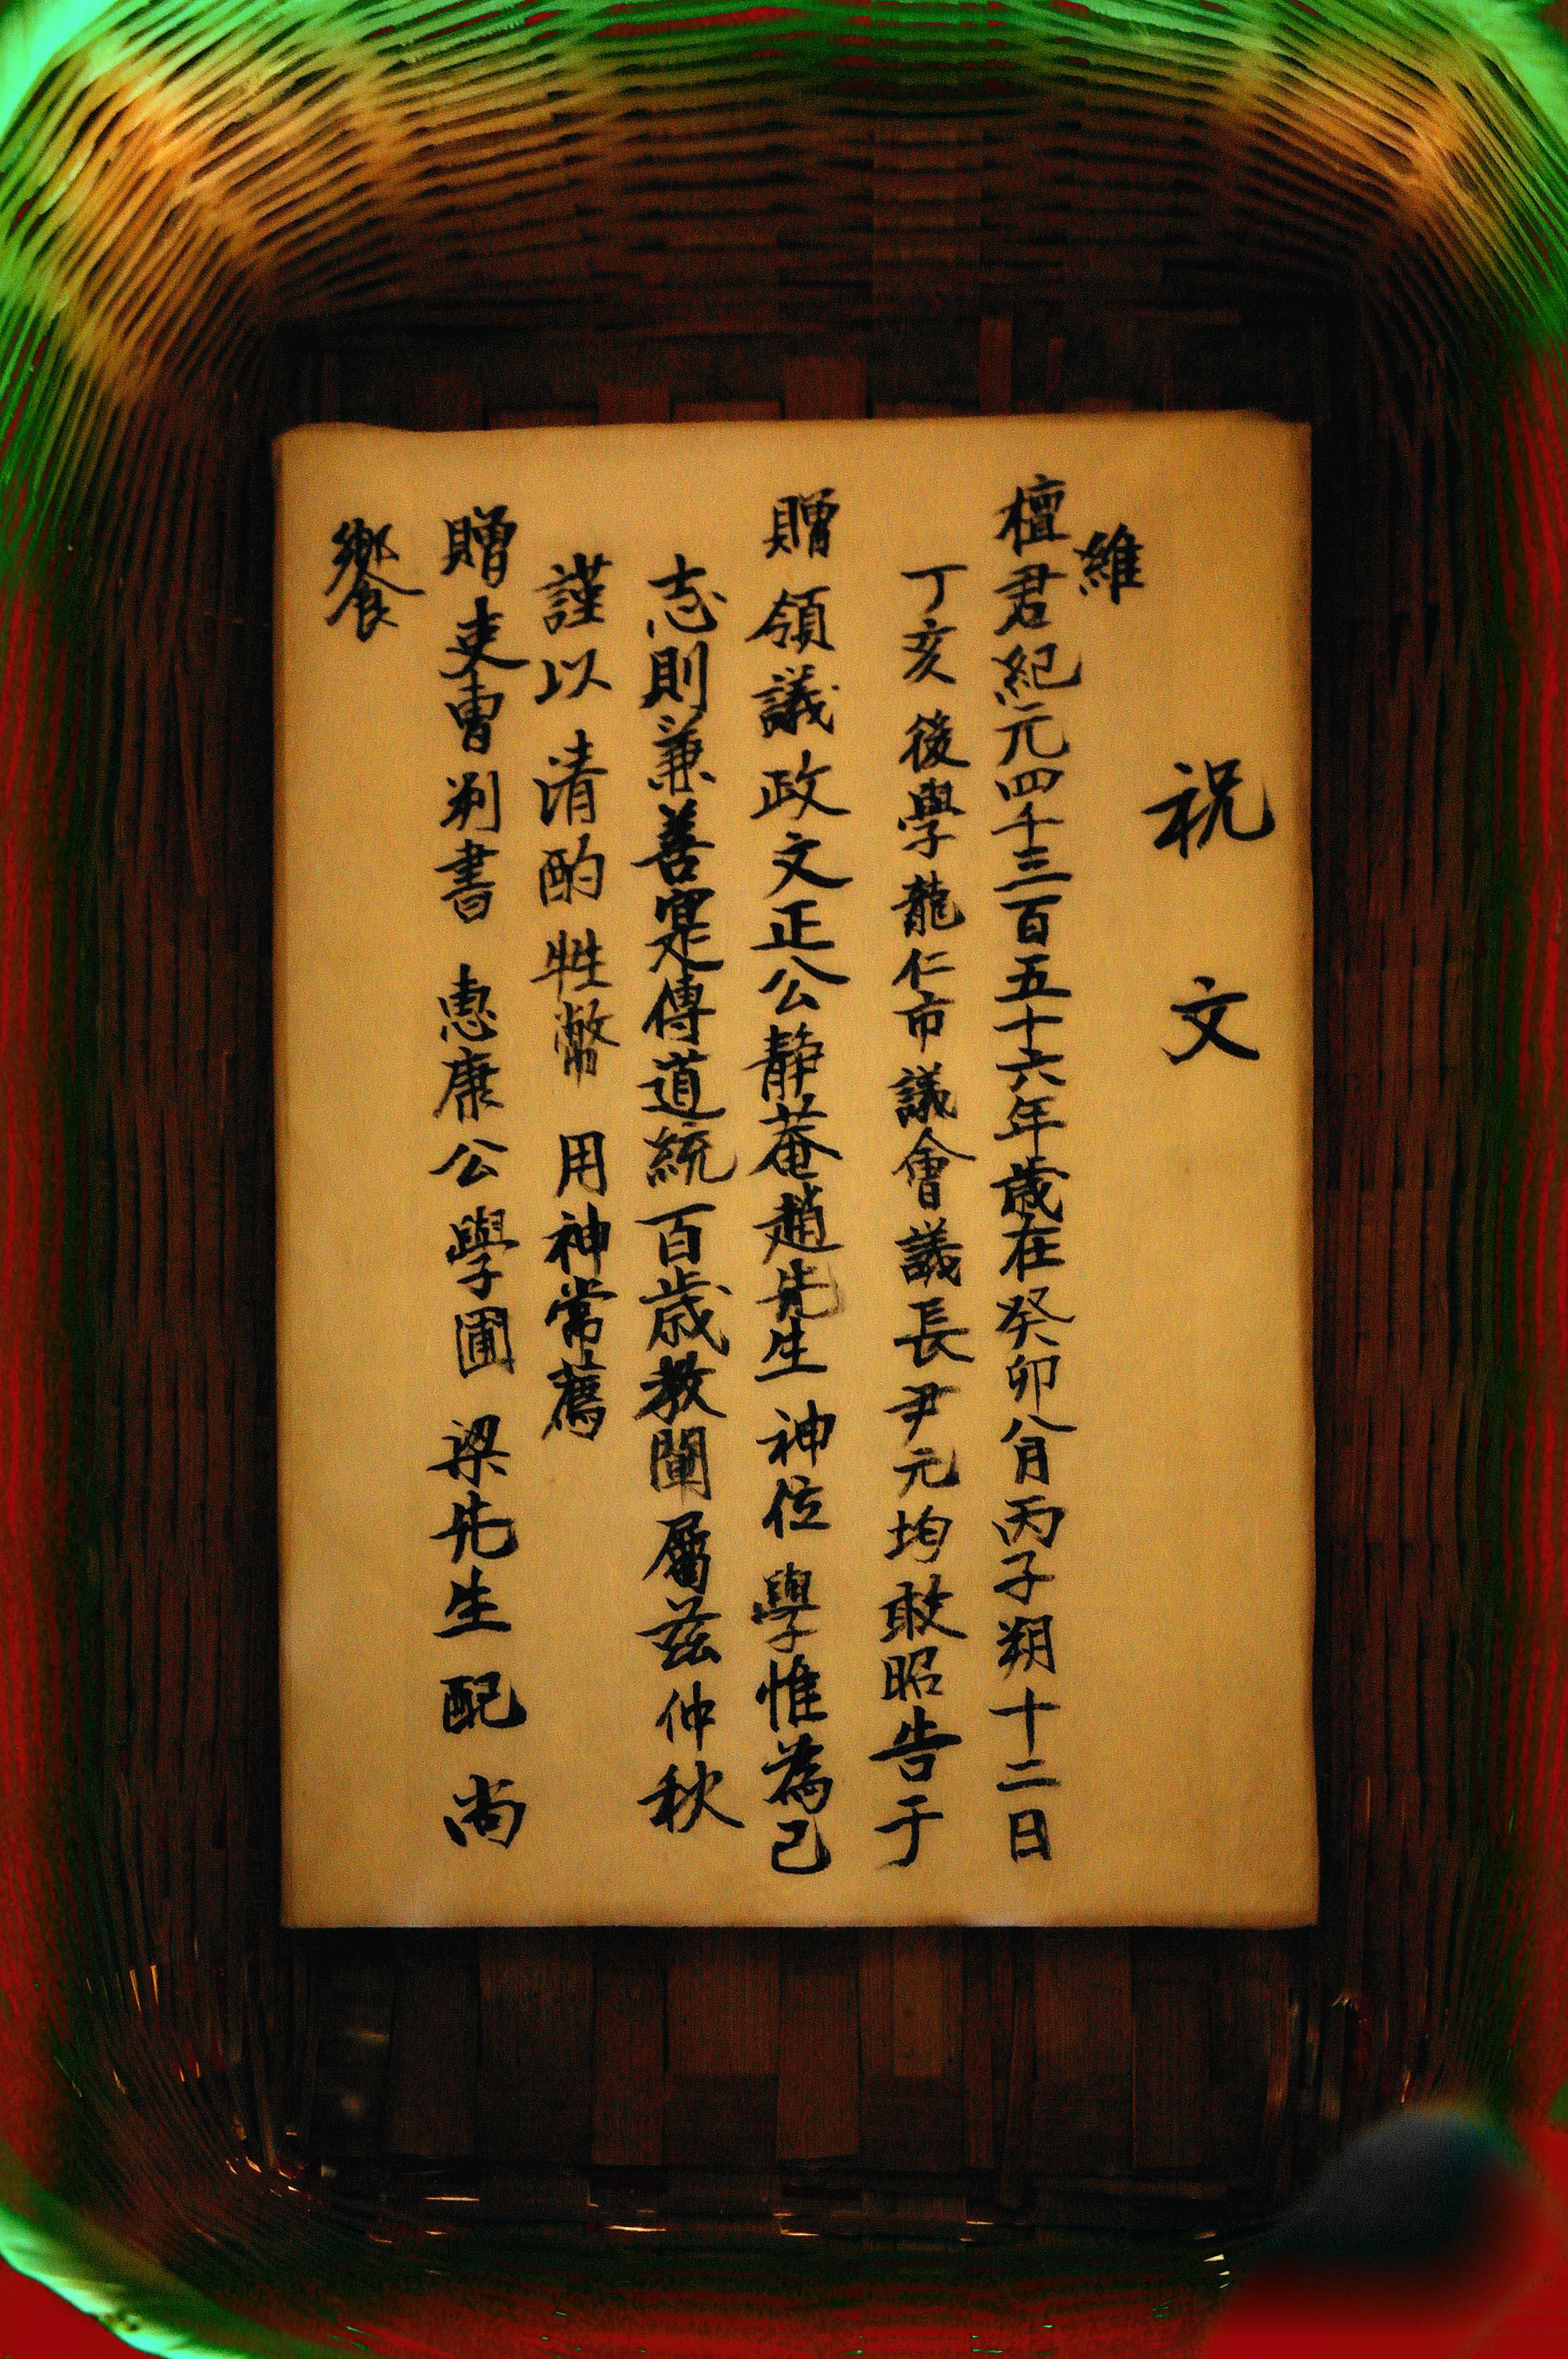 祝文
維
檀君紀元四千三百五十六年歲在癸卯八月丙子朔十二日
丁亥後學龍仁市議會議長尹元均敢昭告于
贈領議政文正公靜菴趙先生神位學惟為己
志則兼善寔傳道統百歲教闡屬茲仲秋
謹以清酌牲幣用神常薦
贈吏曹判書惠康公學圃梁先生配尚
饗